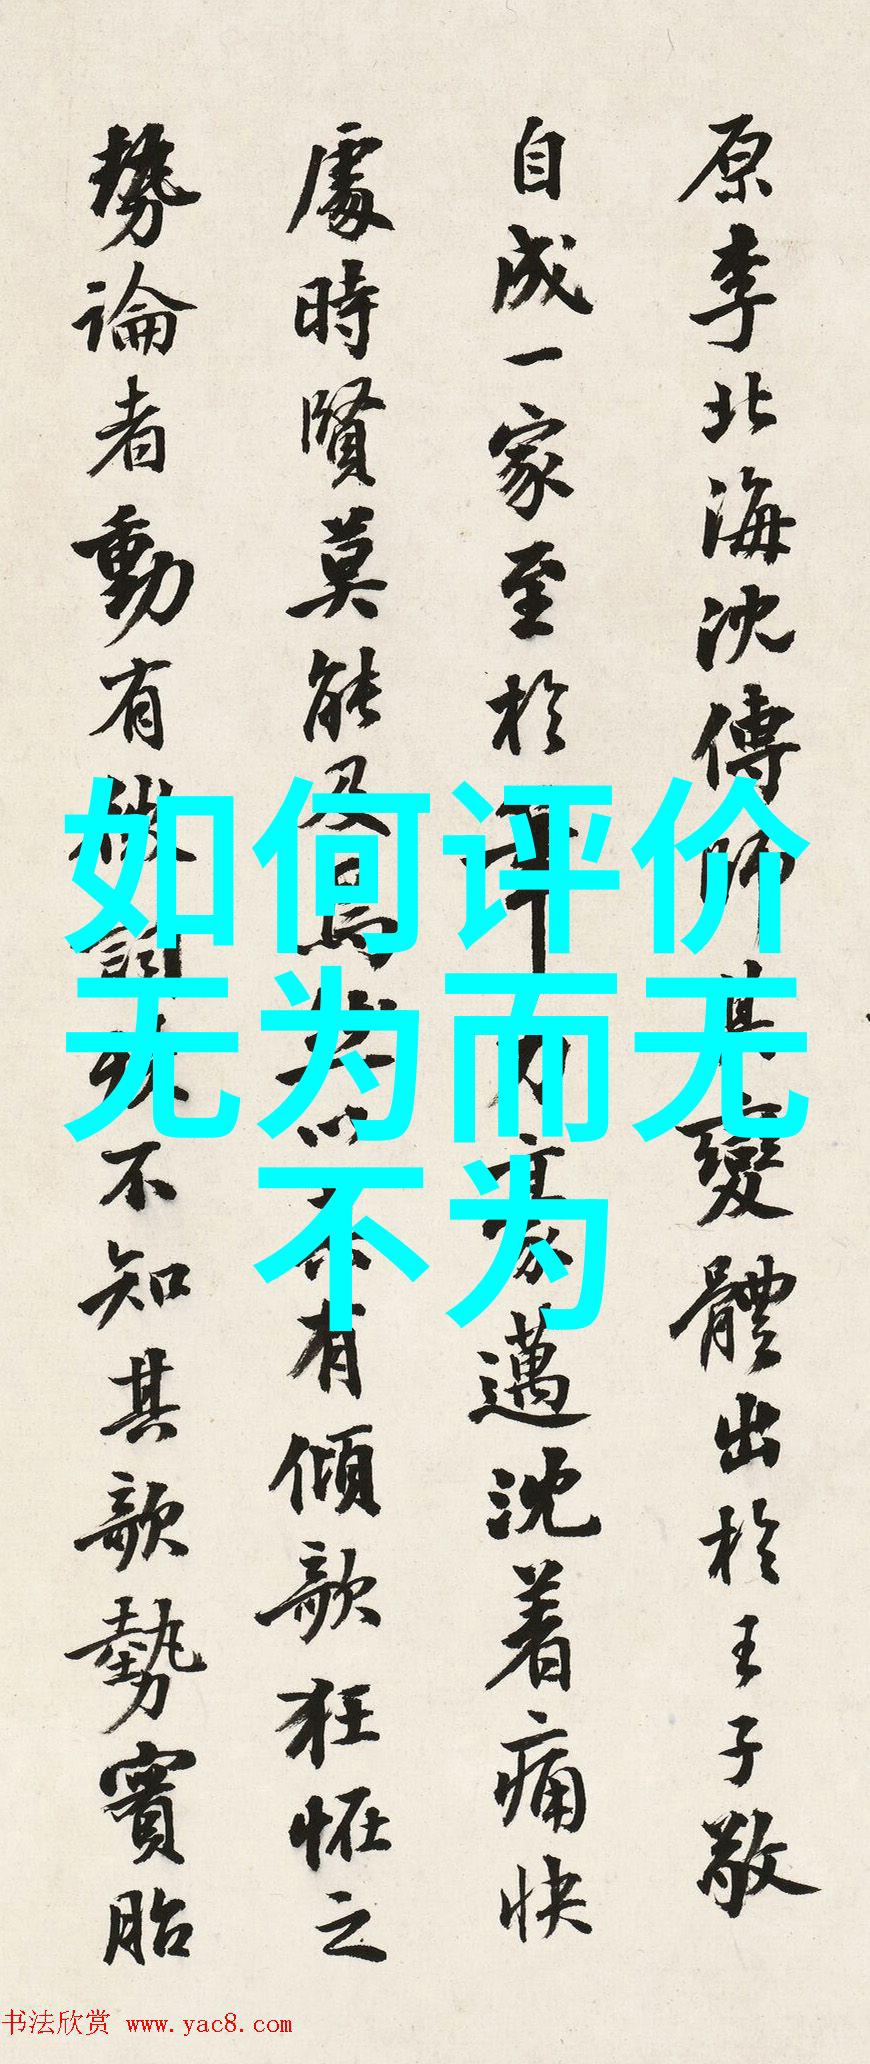 原李北海沈傳師其變體出於王子敬
自成一家至於豪邁沈着痛快
處時賢莫能及有傾欹狂怪之
勢論者動有微詞殊不知其欹勢實胎
如何评价
无为而无
不为
书法欣赏 www.yac8.com